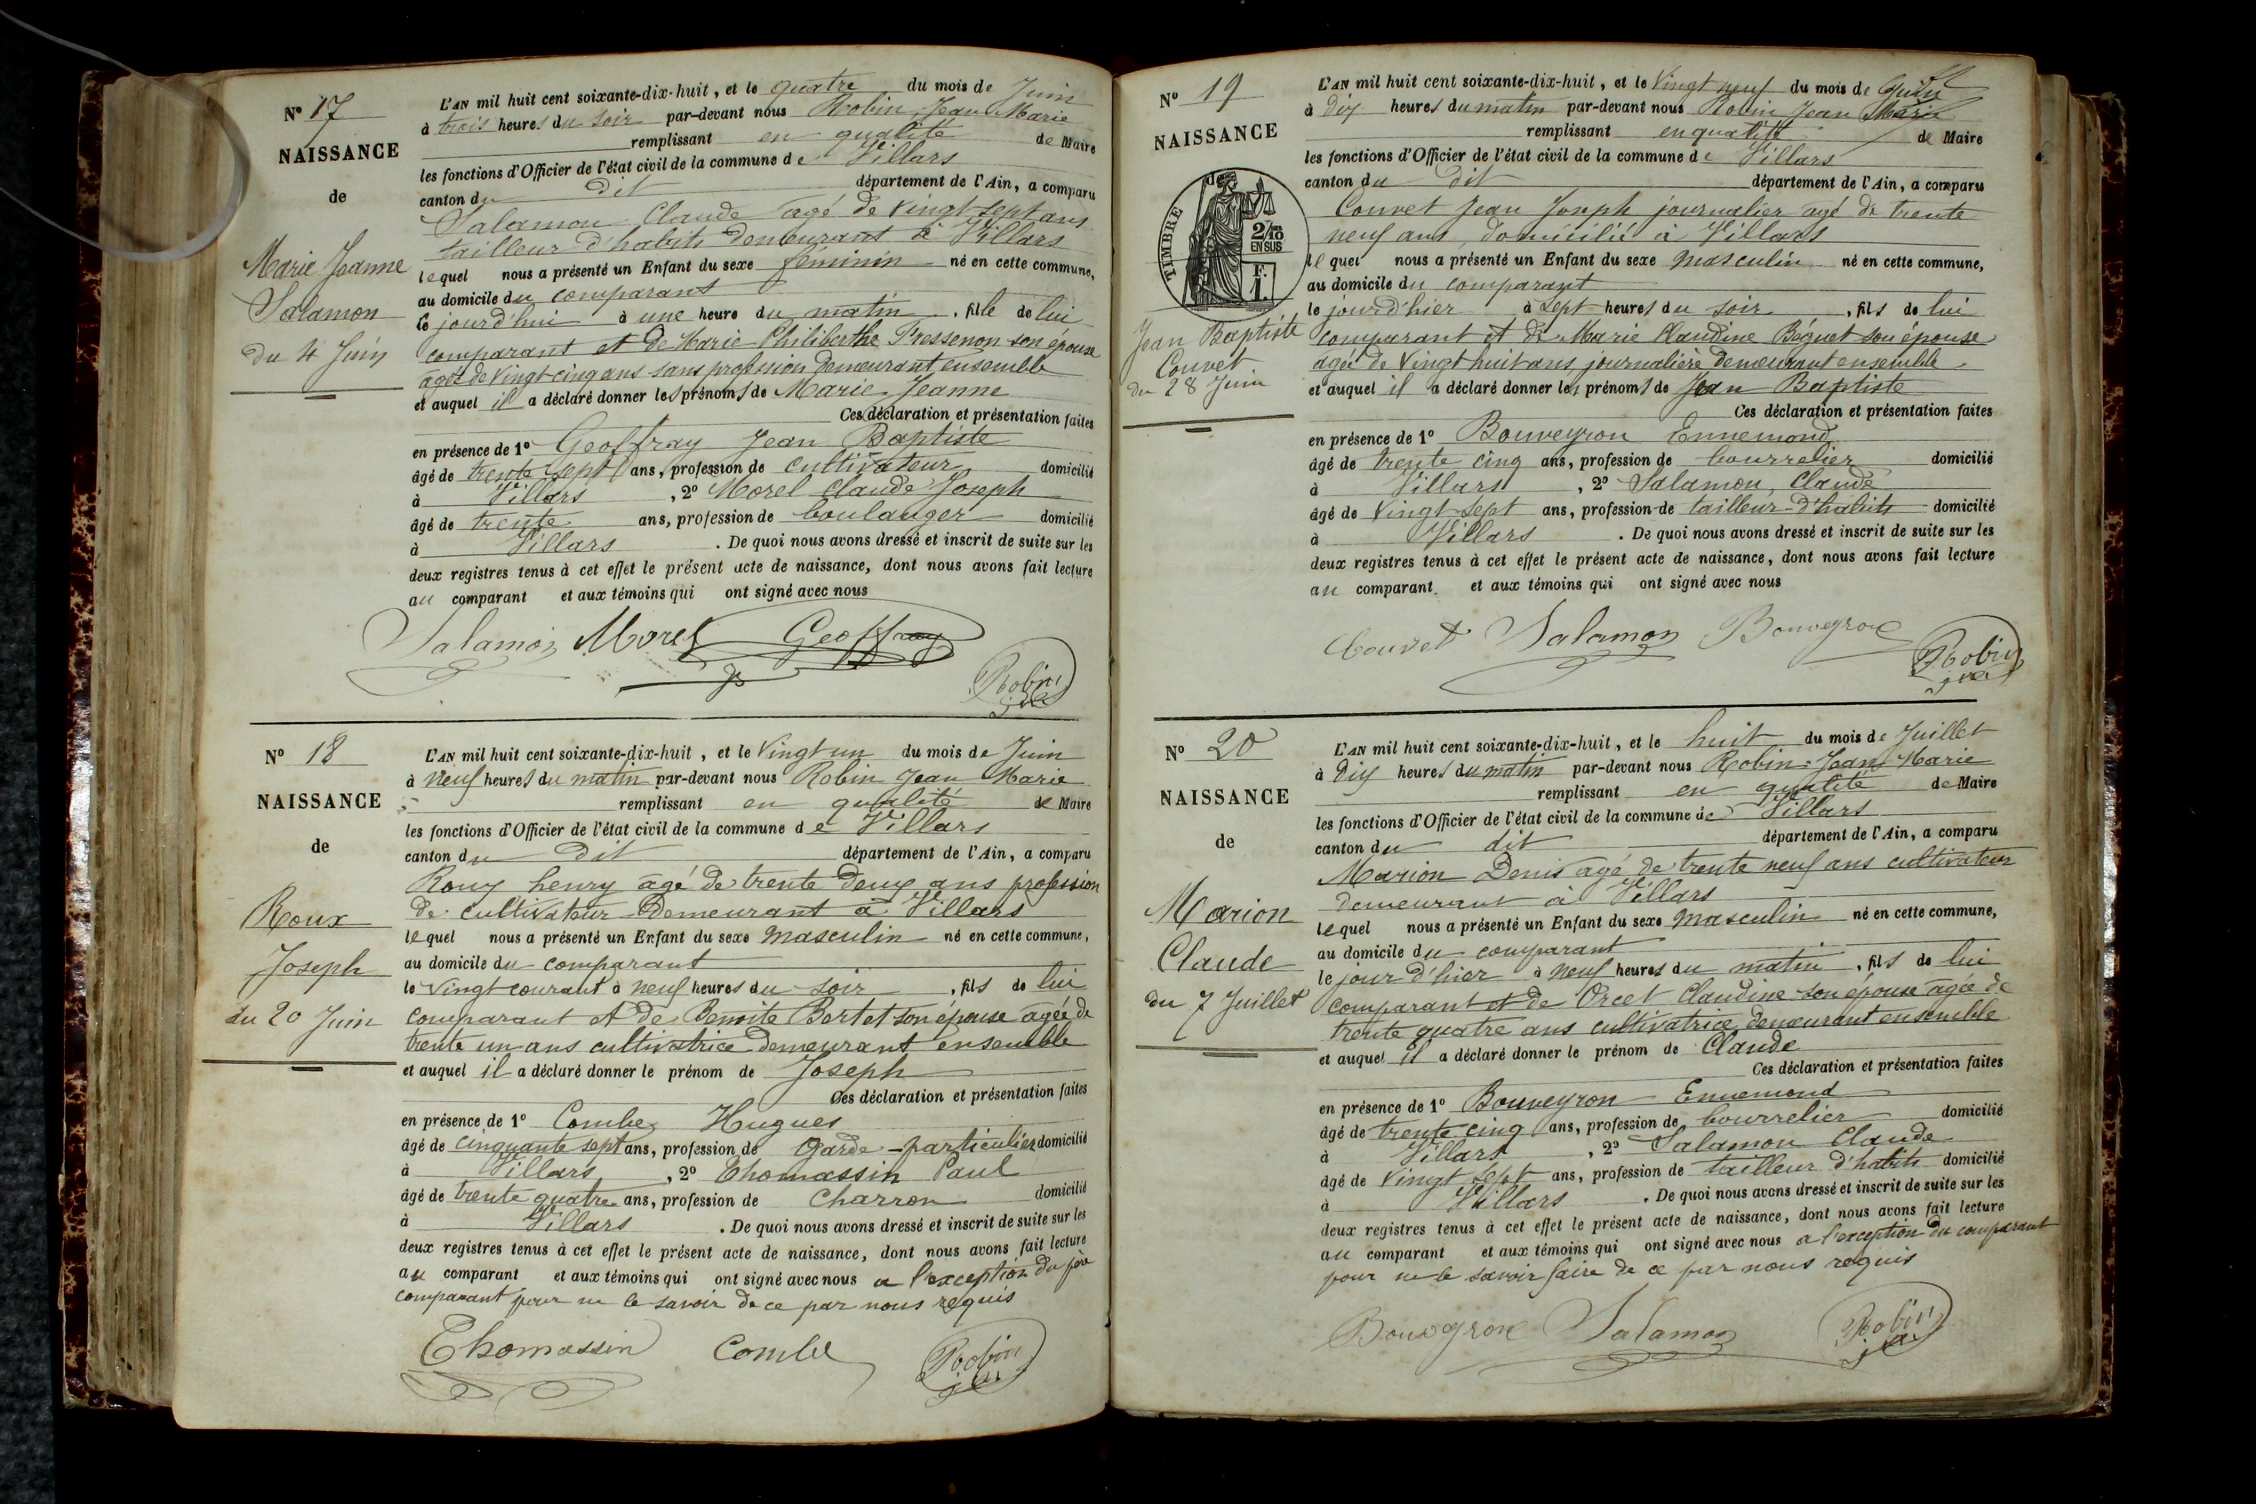 N° 17
NAISSANCE
de
Marie Jeanne
Salamon
du 4 Juin
L'AN mil huit cent soixante-dix-huit, et le quatre du mois de Juin
à trois heures du soir par-devant nous Robin Jean Marie
remplissant en qualité de Maire
les fonctions d'Officier de l'état civil de la commune de Villars
canton du dit département de l'Ain, a comparu
Salamon Claude agé de vingt sept ans
tailleur d'habits demeurant à Villars
lequel nous a présenté un Enfant du sexe féminin né en cette commune,
au domicile du comparant
le jourd'hui à une heure du matin, fille de lui
comparant et de Marie Philiberthe Fressenon son épouse
agée de vingt cinq ans sans profession demeurant ensemble
et auquel il a déclaré donner les prénoms de Marie Jeanne
Ces déclaration et présentation faites
en présence de 1° Geoffray Jean Baptiste
âgé de trente sept ans, profession de cultivateur domicilié
à Villars, 2° Morel Claude Joseph
âgé de trente ans, profession de boulanger domicilié
à Villars. De quoi nous avons dressé et inscrit de suite sur les
deux registres tenus à cet effet le présent acte de naissance, dont nous avons fait lecture
au comparant et aux témoins qui ont signé avec nous
Salamon Morel Geoffray
Robin
N° 18
NAISSANCE
de
Roux
Joseph
du 20 Juin
L'AN mil huit cent soixante-dix-huit, et le vingt un du mois de Juin
à neuf heures du matin par-devant nous Robin Jean Marie
remplissant en qualité de Maire
les fonctions d'Officier de l'état civil de la commune de Villars
canton du dit département de l'Ain, a comparu
Roux henry agé de trente deux ans profession
de cultivateur demeurant à Villars
lequel nous a présenté un Enfant du sexe masculin né en cette commune,
au domicile du comparant
le vingt courant à neuf heures du soir, fils de lui
comparant et de Benoite Bertet son épouse agée de
trente un ans cultivatrice demeurant ensemble
et auquel il a déclaré donner le prénom de Joseph
Ces déclaration et présentation faites
en présence de 1° Combe Hugues
âgé de cinquante sept ans, profession de Garde-particulier domicilié
à Villars, 2° Thomassin Paul
âgé de trente quatre ans, profession de Charron domicilié
à Villars. De quoi nous avons dressé et inscrit de suite sur les
deux registres tenus à cet effet le présent acte de naissance, dont nous avons fait lecture
au comparant et aux témoins qui ont signé avec nous a l'exception du père
comparant pour ne le savoir de ce par nous requis
Thomassin Combe Robin
N° 19
NAISSANCE
de
TIMBRE
2/10
EN SUS
F.
1.
Jean Baptiste
Couvet
du 28 Juin
L'AN mil huit cent soixante-dix-huit, et le vingt neuf du mois de Juin
à dix heures du matin par-devant nous Robin Jean Marie
remplissant en qualité de Maire
les fonctions d'Officier de l'état civil de la commune de Villars
canton du dit département de l'Ain, a comparu
Couvet Jean Joseph journalier agé de trente
neuf ans, domicilié à Villars
lequel nous a présenté un Enfant du sexe masculin né en cette commune,
au domicile du comparant
le jourd'hier à sept heures du soir, fils de lui
comparant et de Marie Claudine Béguet son épouse
agée de vingt huit ans journalière demeurant ensemble
et auquel il a déclaré donner les prénoms de Jean Baptiste
Ces déclaration et présentation faites
en présence de 1° Bouveyron Ennemond
âgé de trente cinq ans, profession de bourrelier domicilié
à Villars, 2° Salamon Claude
âgé de vingt sept ans, profession de tailleur d'habits domicilié
à Villars. De quoi nous avons dressé et inscrit de suite sur les
deux registres tenus à cet effet le présent acte de naissance, dont nous avons fait lecture
au comparant et aux témoins qui ont signé avec nous
Couvet Salamon Bouveyron
Robin
N° 20
NAISSANCE
de
Marion
Claude
du 7 Juillet
L'AN mil huit cent soixante-dix-huit, et le huit du mois de Juillet
à dix heures du matin par-devant nous Robin Jean Marie
remplissant en qualité de Maire
les fonctions d'Officier de l'état civil de la commune de Villars
canton du dit département de l'Ain, a comparu
Marion Denis agé de trente neuf ans cultivateur
demeurant à Villars
lequel nous a présenté un Enfant du sexe masculin né en cette commune,
au domicile du comparant
le jour d'hier à neuf heures du matin, fils de lui
comparant et de Orcet Claudine son épouse agée de
trente quatre ans cultivatrice demeurant ensemble
et auquel il a déclaré donner le prénom de Claude
Ces déclaration et présentation faites
en présence de 1° Bouveyron Ennemond
âgé de trente cinq ans, profession de bourrelier domicilié
à Villars, 2° Salamon Claude
âgé de vingt sept ans, profession de tailleur d'habits domicilié
à Villars. De quoi nous avons dressé et inscrit de suite sur les
deux registres tenus à cet effet le présent acte de naissance, dont nous avons fait lecture
au comparant et aux témoins qui ont signé avec nous a l'exception du comparant
pour ne le savoir faire de ce par nous requis
Bouveyron Salamon Robin